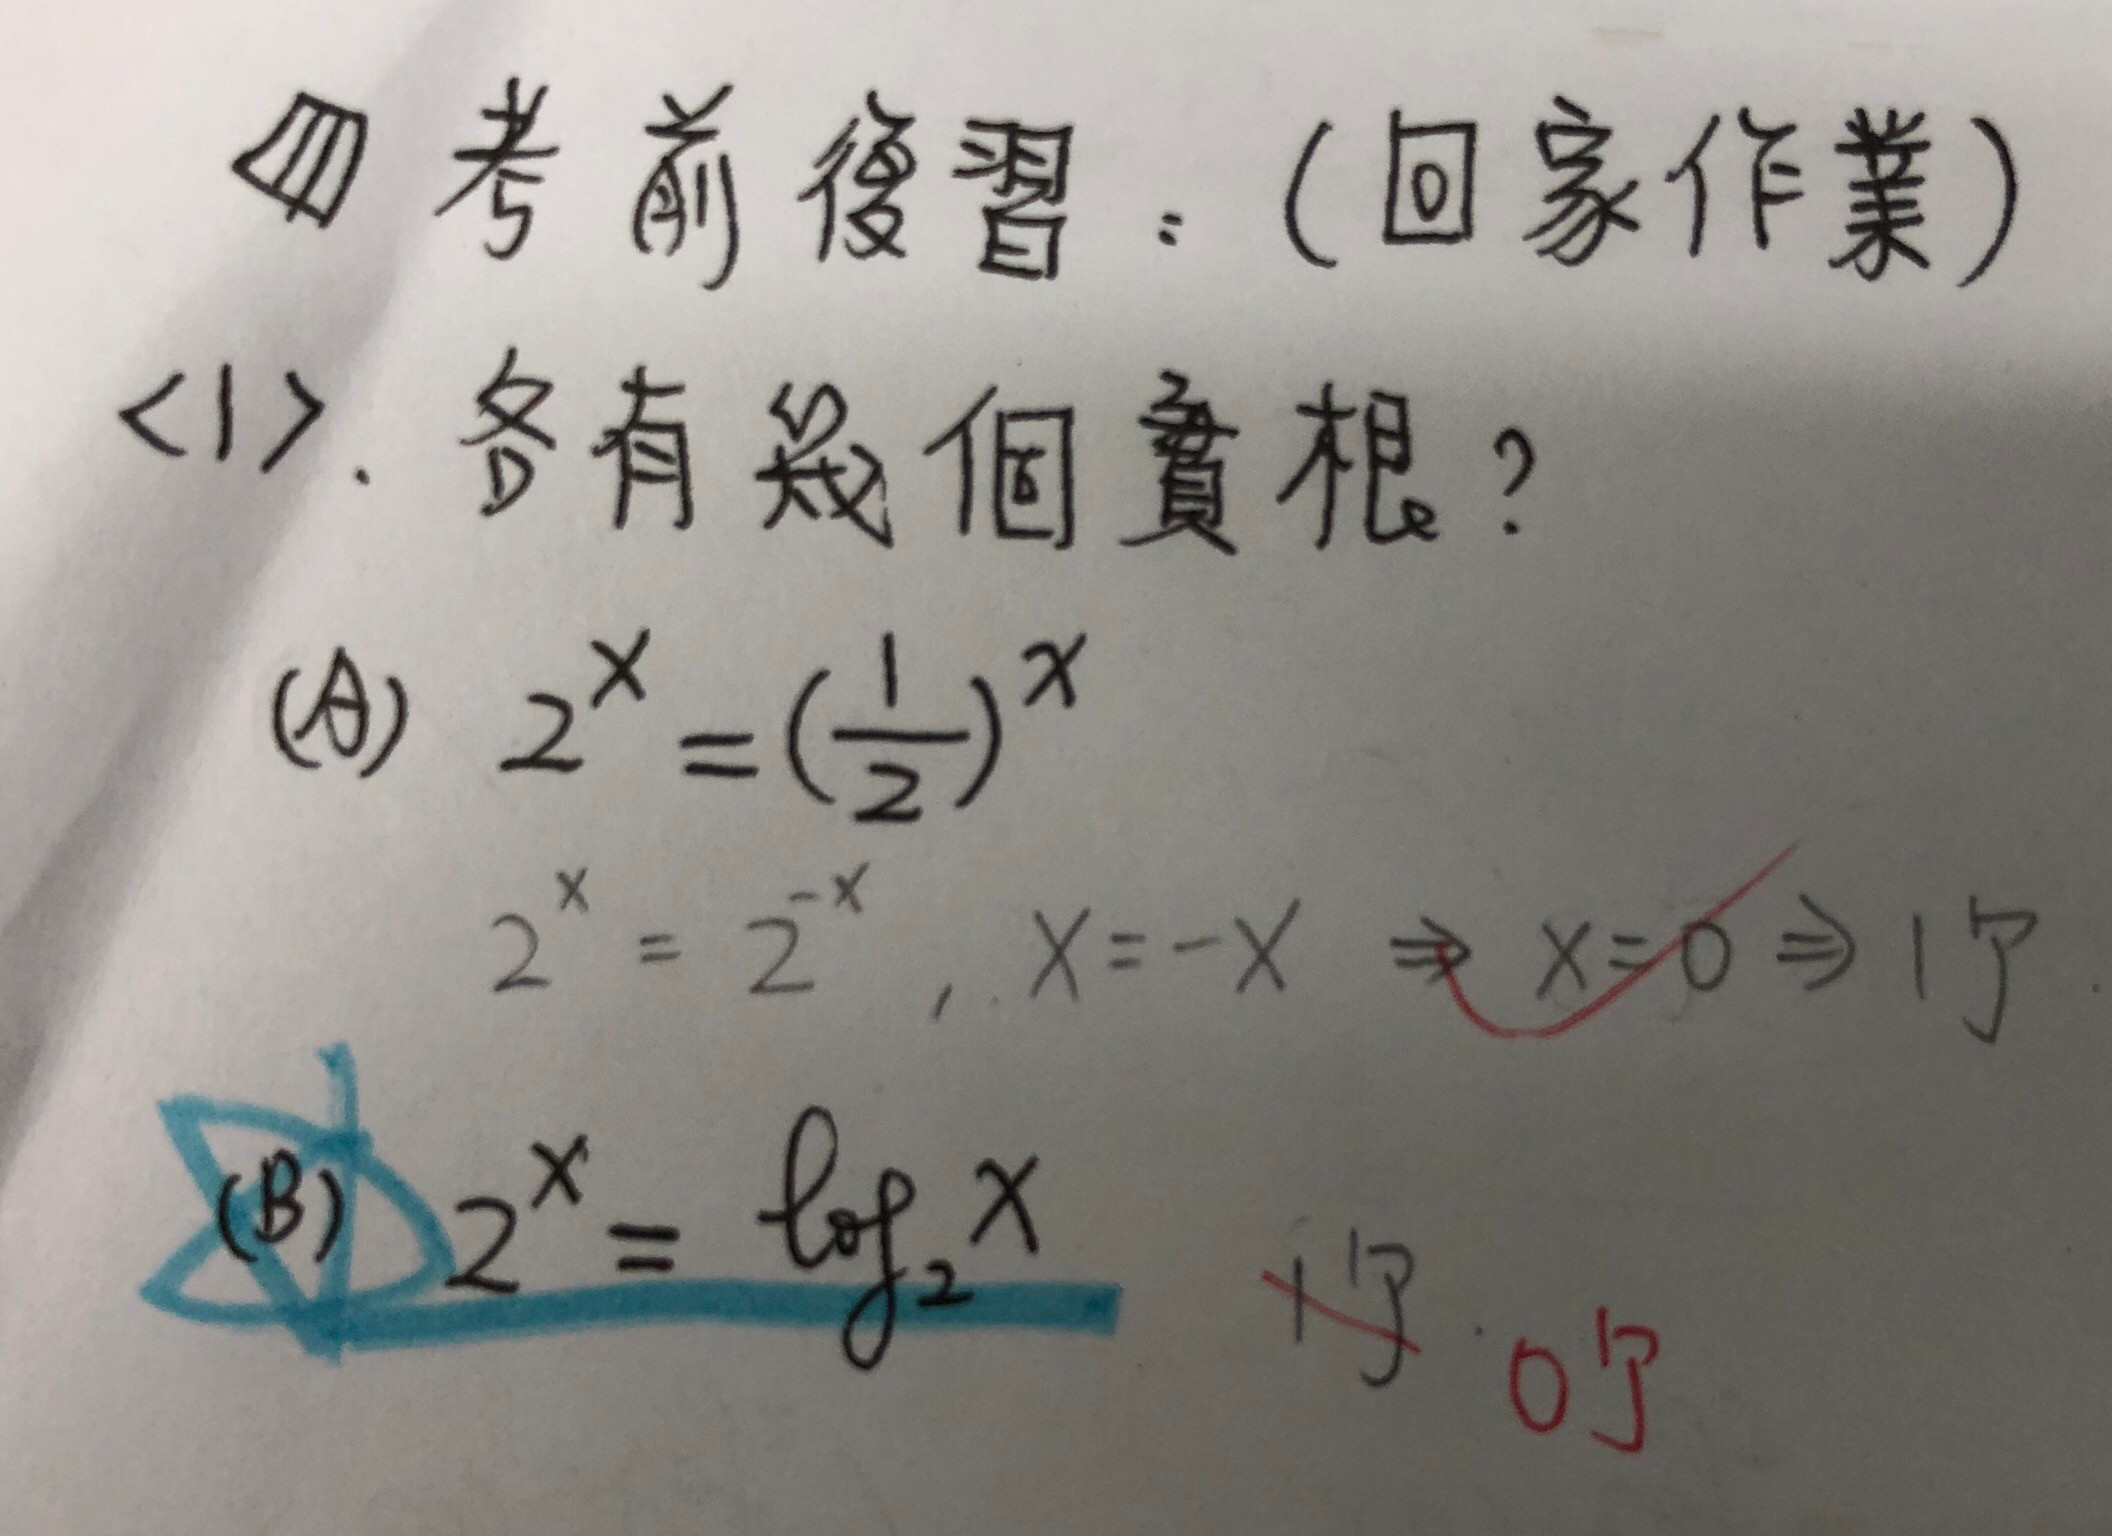 考前復習：(回家作業)
<1>. 各有幾個實根？
(A) 2^x = (1/2)^x
2^x = 2^-x , x = -x ⇒ x = 0 ⇒ 1個
(B) 2^x = log₂x 1個. 0個